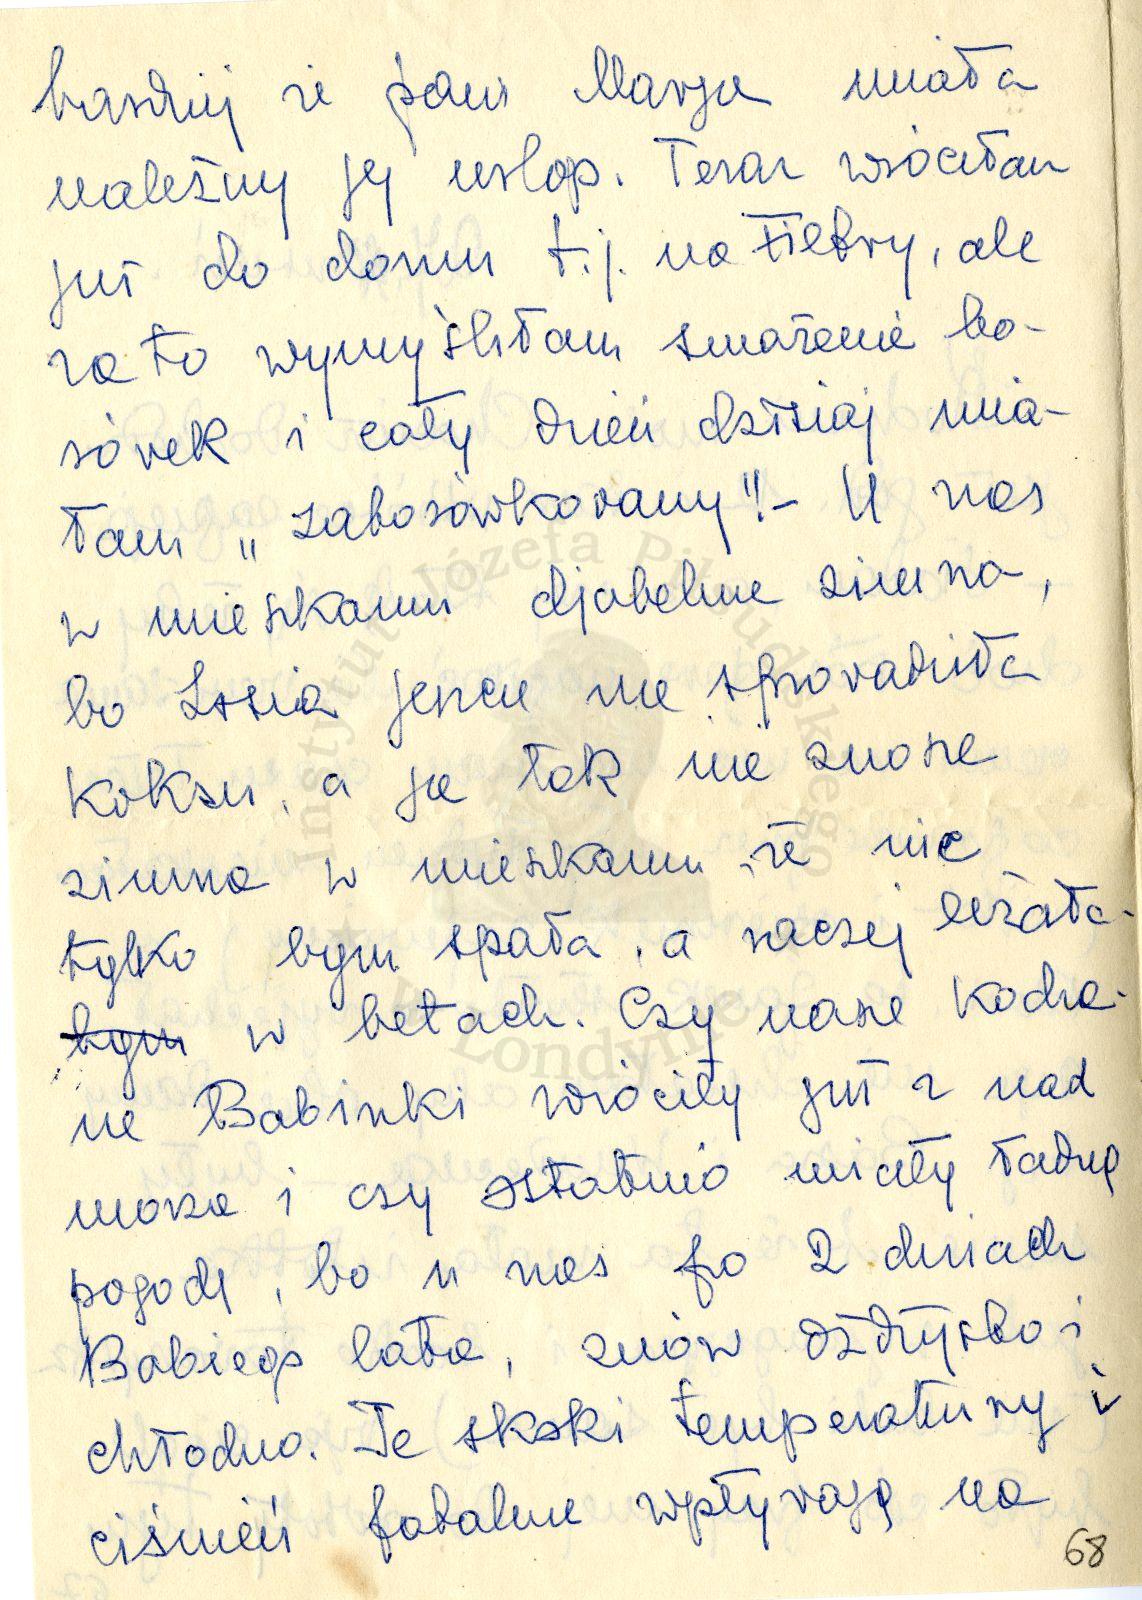 bardziej że pani Marja miała
należny jej urlop. Teraz wróciłam
już do domu t.j. na Filtry, ale
za to wymyśliłam smażenie bo-
rówek i cały dzień dzisiaj mia-
łam „zaborówkowany"! - U nas
w mieszkaniu djabelnie zimno,
bo Zosia jeszcze nie sprowadziła
koksu, a ja tak nie znoszę
zimna w mieszkaniu, że nic
tylko bym spała, a raczej leżała-
bym w betach. Czy nasze kocha-
ne Babinki wróciły już z nad
morza i czy ostatnio miały ładną
pogodę, bo u nas po 2 dniach
Babiego lata, znów dżdżysto i
chłodno. Te skoki temperatury i
ciśnień fatalnie wpływają na
68
Instytut Józefa Piłsudskiego
w Londynie